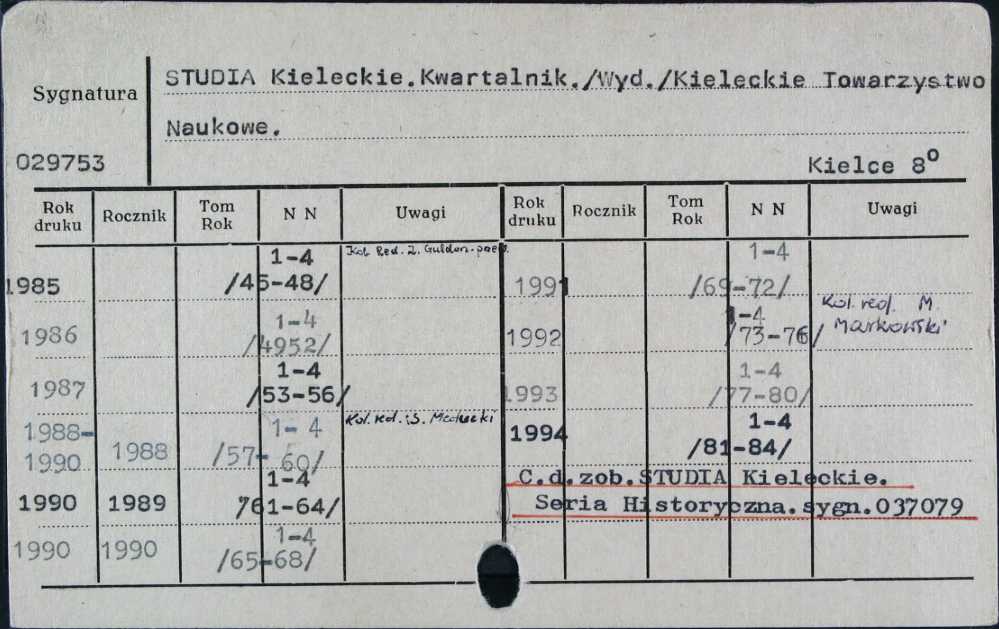 STUDIA Kieleckie.Kwartalnik./Wyd./Kieleckie Towarzystwo
Sygnatura
Naukowe.
029753
Kielce 8º
Rok druku Rocznik Tom Rok N N Uwagi Rok druku Rocznik Tom Rok N N Uwagi
1-4 Kol. Red. Z. Guldon-
1985 /45-48/
1-4
1986 /4952/
1-4
1987 /53-56/
1988- 1- 4 Kol. red. :S.
1990 1988 /57- 60/
1-4
1990 1989 761-64/
1-4
1990 1990 /65-68/
1-4
1991 /69-72/
1-4 Kol. red. M.
1992 /73-76/ Markowski
1-4
1993 /77-80/
1-4
1994 /81-84/
C.d.zob.STUDIA Kieleckie.
Seria Historyczna.sygn.037079